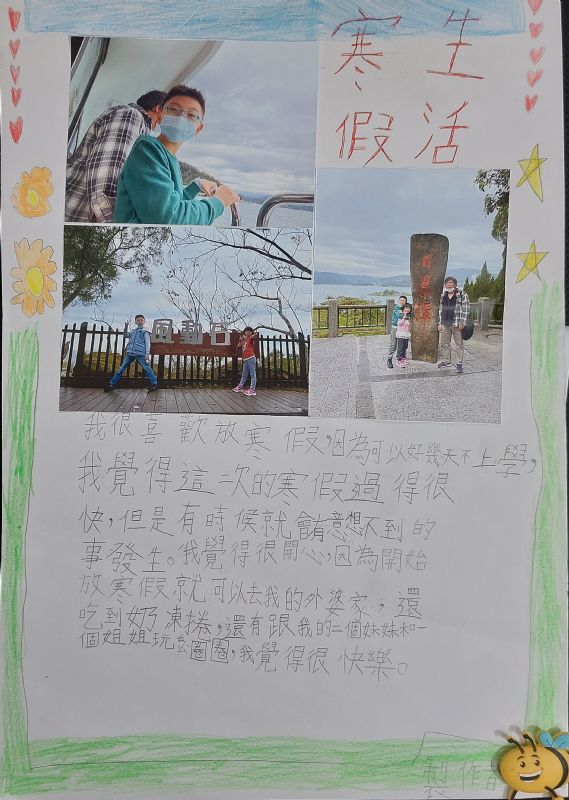 寒假
生活
我很喜歡放寒假,因為可以好幾天不上學,
我覺得這一次的寒假過得很
快,但是有時候就會有意想不到的
事發生。我覺得很開心,因為開始
放寒假就可以去我的外婆家,還
吃到奶凍捲,還有跟我的二個妹妹和一
個姐姐玩 圈圈,我覺得很快樂。
製作